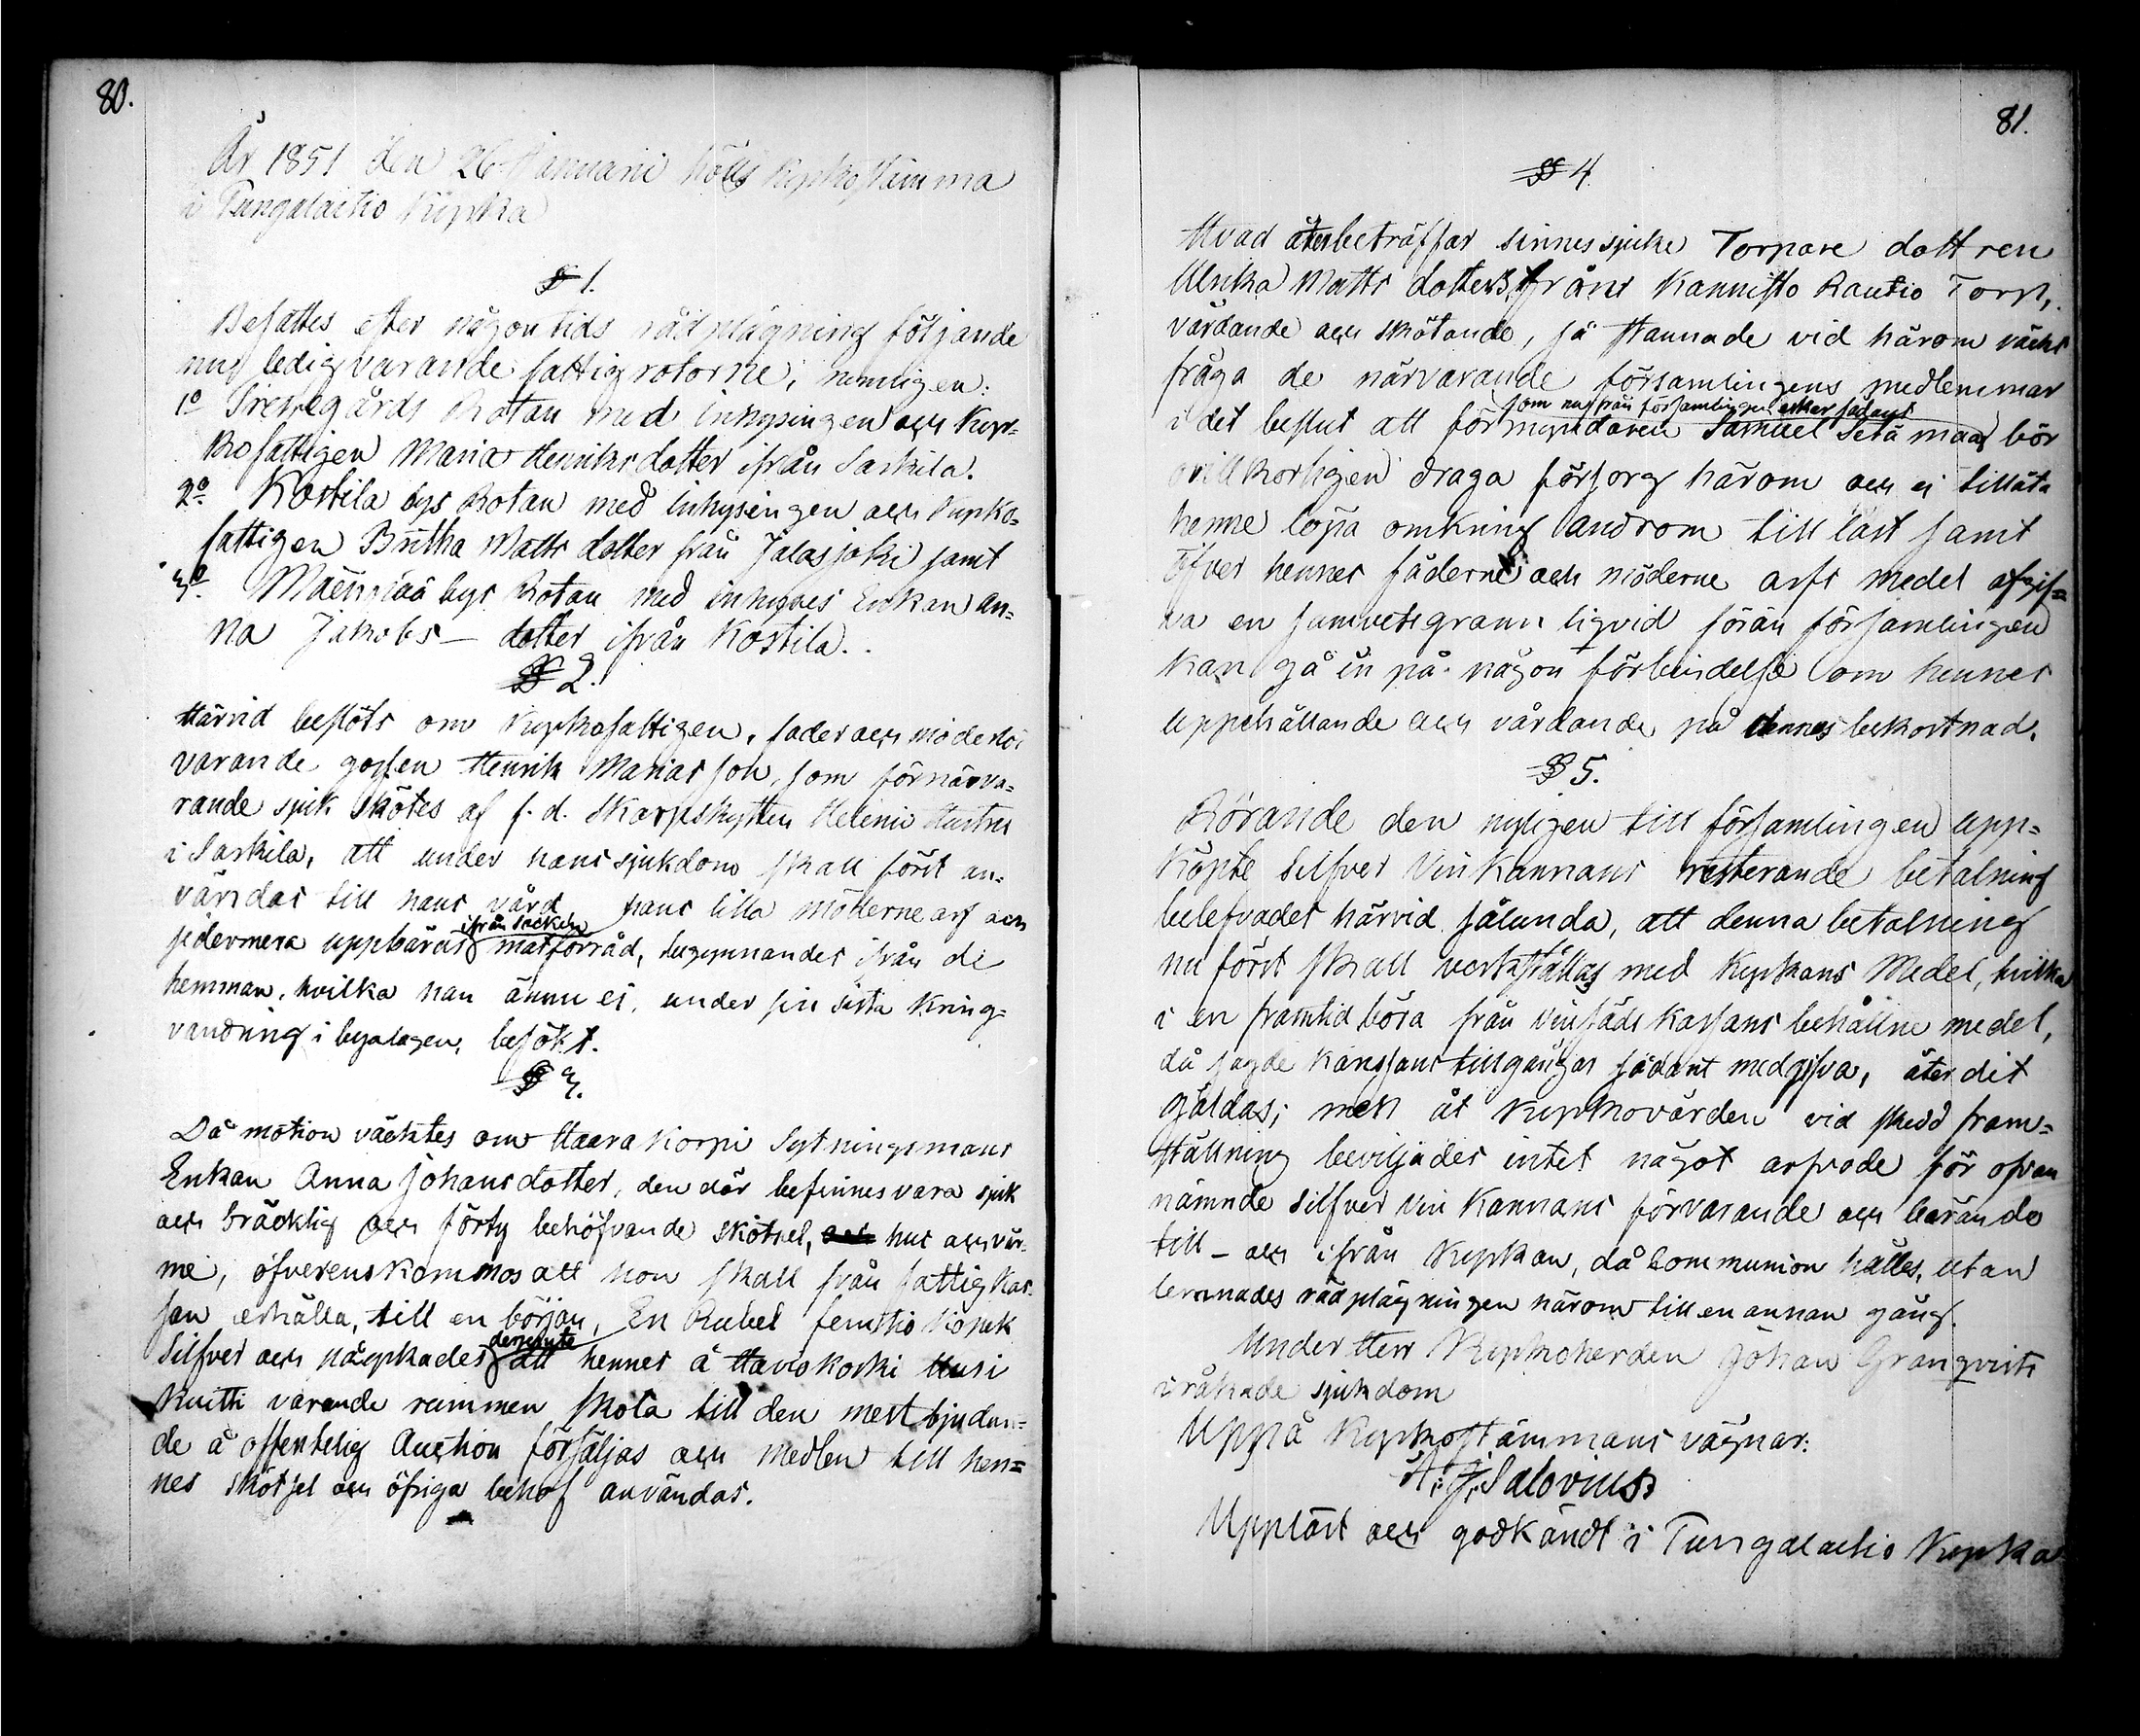 80.
År 1851 den 26 Januarii hölls Kyrkostämma
i Pungalaitio Kyrka
§ 1.
Besattes efter någon tids rådplägning följande
nu ledigvarande fattigrotorne, nemligen:
1º Prestegårds Rotan med inhysingen och Kyr-
kofattigen Maria Henriksdotter ifrån Sarkila.
2º Kostila bys Rotan med inhysingen och Kyrko-
fattigen Britha Matts dotter från Jalasjoki samt
3º Mäenpää bys Rotan med inhyses Enkan An-
na Jakobs- dotter ifrån Kostila.
§ 2.
Härvid beslöts om Kyrkofattigen, fader och moderlös
varande gossen Henrik Mariasson, som förnärva-
rande sjuk skötes af f. d. Skarpskytten Helenii Hustru
i Sarkila, att under hans sjukdom skall först an-
vändas till hans vård hans lilla möderne arf och
sedermera uppbäras ifrån Socken matförråd, begynnandes ifrån de
hemman, hvilka han ännu ej, under sin sista Kring-
vandring i byalagen, besökt.
§ 3.
Då motion väcktes om Haarakorpi Sytningsmans
Enkan Anna Johansdotter, den där befinnes vara sjuk
och bräcklig och förty behöfvande skötsel, och hus och vär-
me, öfverenskommos att hon skall från fattigkas-
san erhålla, till en början, En Rubel femtio Kopek
Silfver och påyrkades dessutom att hennes å Haviokoski Uusi
Knitti varande rummen skola till den mestbjudan-
de å offentelig Auction försäljas och medlen till hen-
nes skötsel och öfriga behof användas.
81.
§ 4.
Hvad åter beträffar sinnessjuke Torpare dottren
Ulrika Matts dotters, ifrån Kannisto Rautio Torp,
vårdande och skötande, så stannade vid härom väckt
fråga de närvarande församlingens medlemmar
i det beslut att förmyndaren som nu från församlingen erhar sådant Samuel Setä maa bör
ovillkorligen draga försorg härom och ej tillåta
henne löpa omkring androm till last samt
öfver hennes fäderne och möderne arfs medel afgif-
va en samvetsgrann liqvid förän församlingen
kan gå in på någon förbindelse om hennes
uppehållande och vårdande på dennes bekostnad.
§ 5.
Rörande den nyligen till församlingen upp-
köpte Silfver Vinkannans resterande betalning
belefvades härvid sålunda, att denna betalning
nu först skall verkställas med Kyrkans Medel, hvilka
i en framtid böra från vinsäds Kassans behållne medel,
då sagde Kassans tillgångar sådant medgifva, åter dit
gäldas; men åt Kyrkovärden vid skedd fram-
ställning beviljades intet något arfvode för ofvan
nämnde silfver vin Kannans förvarande och bärande
till- och ifrån Kyrkan, då Communion hålles, utan
lemnades rådplägningen härom till en annan gång.
Under Herr Kyrkoherden Johan Granqvists
iråkade sjukdom
Uppå Kyrkostämmans vägnar:
A. J. Salovius
Uppläst och godkändt i Pungalaitio Kyrka